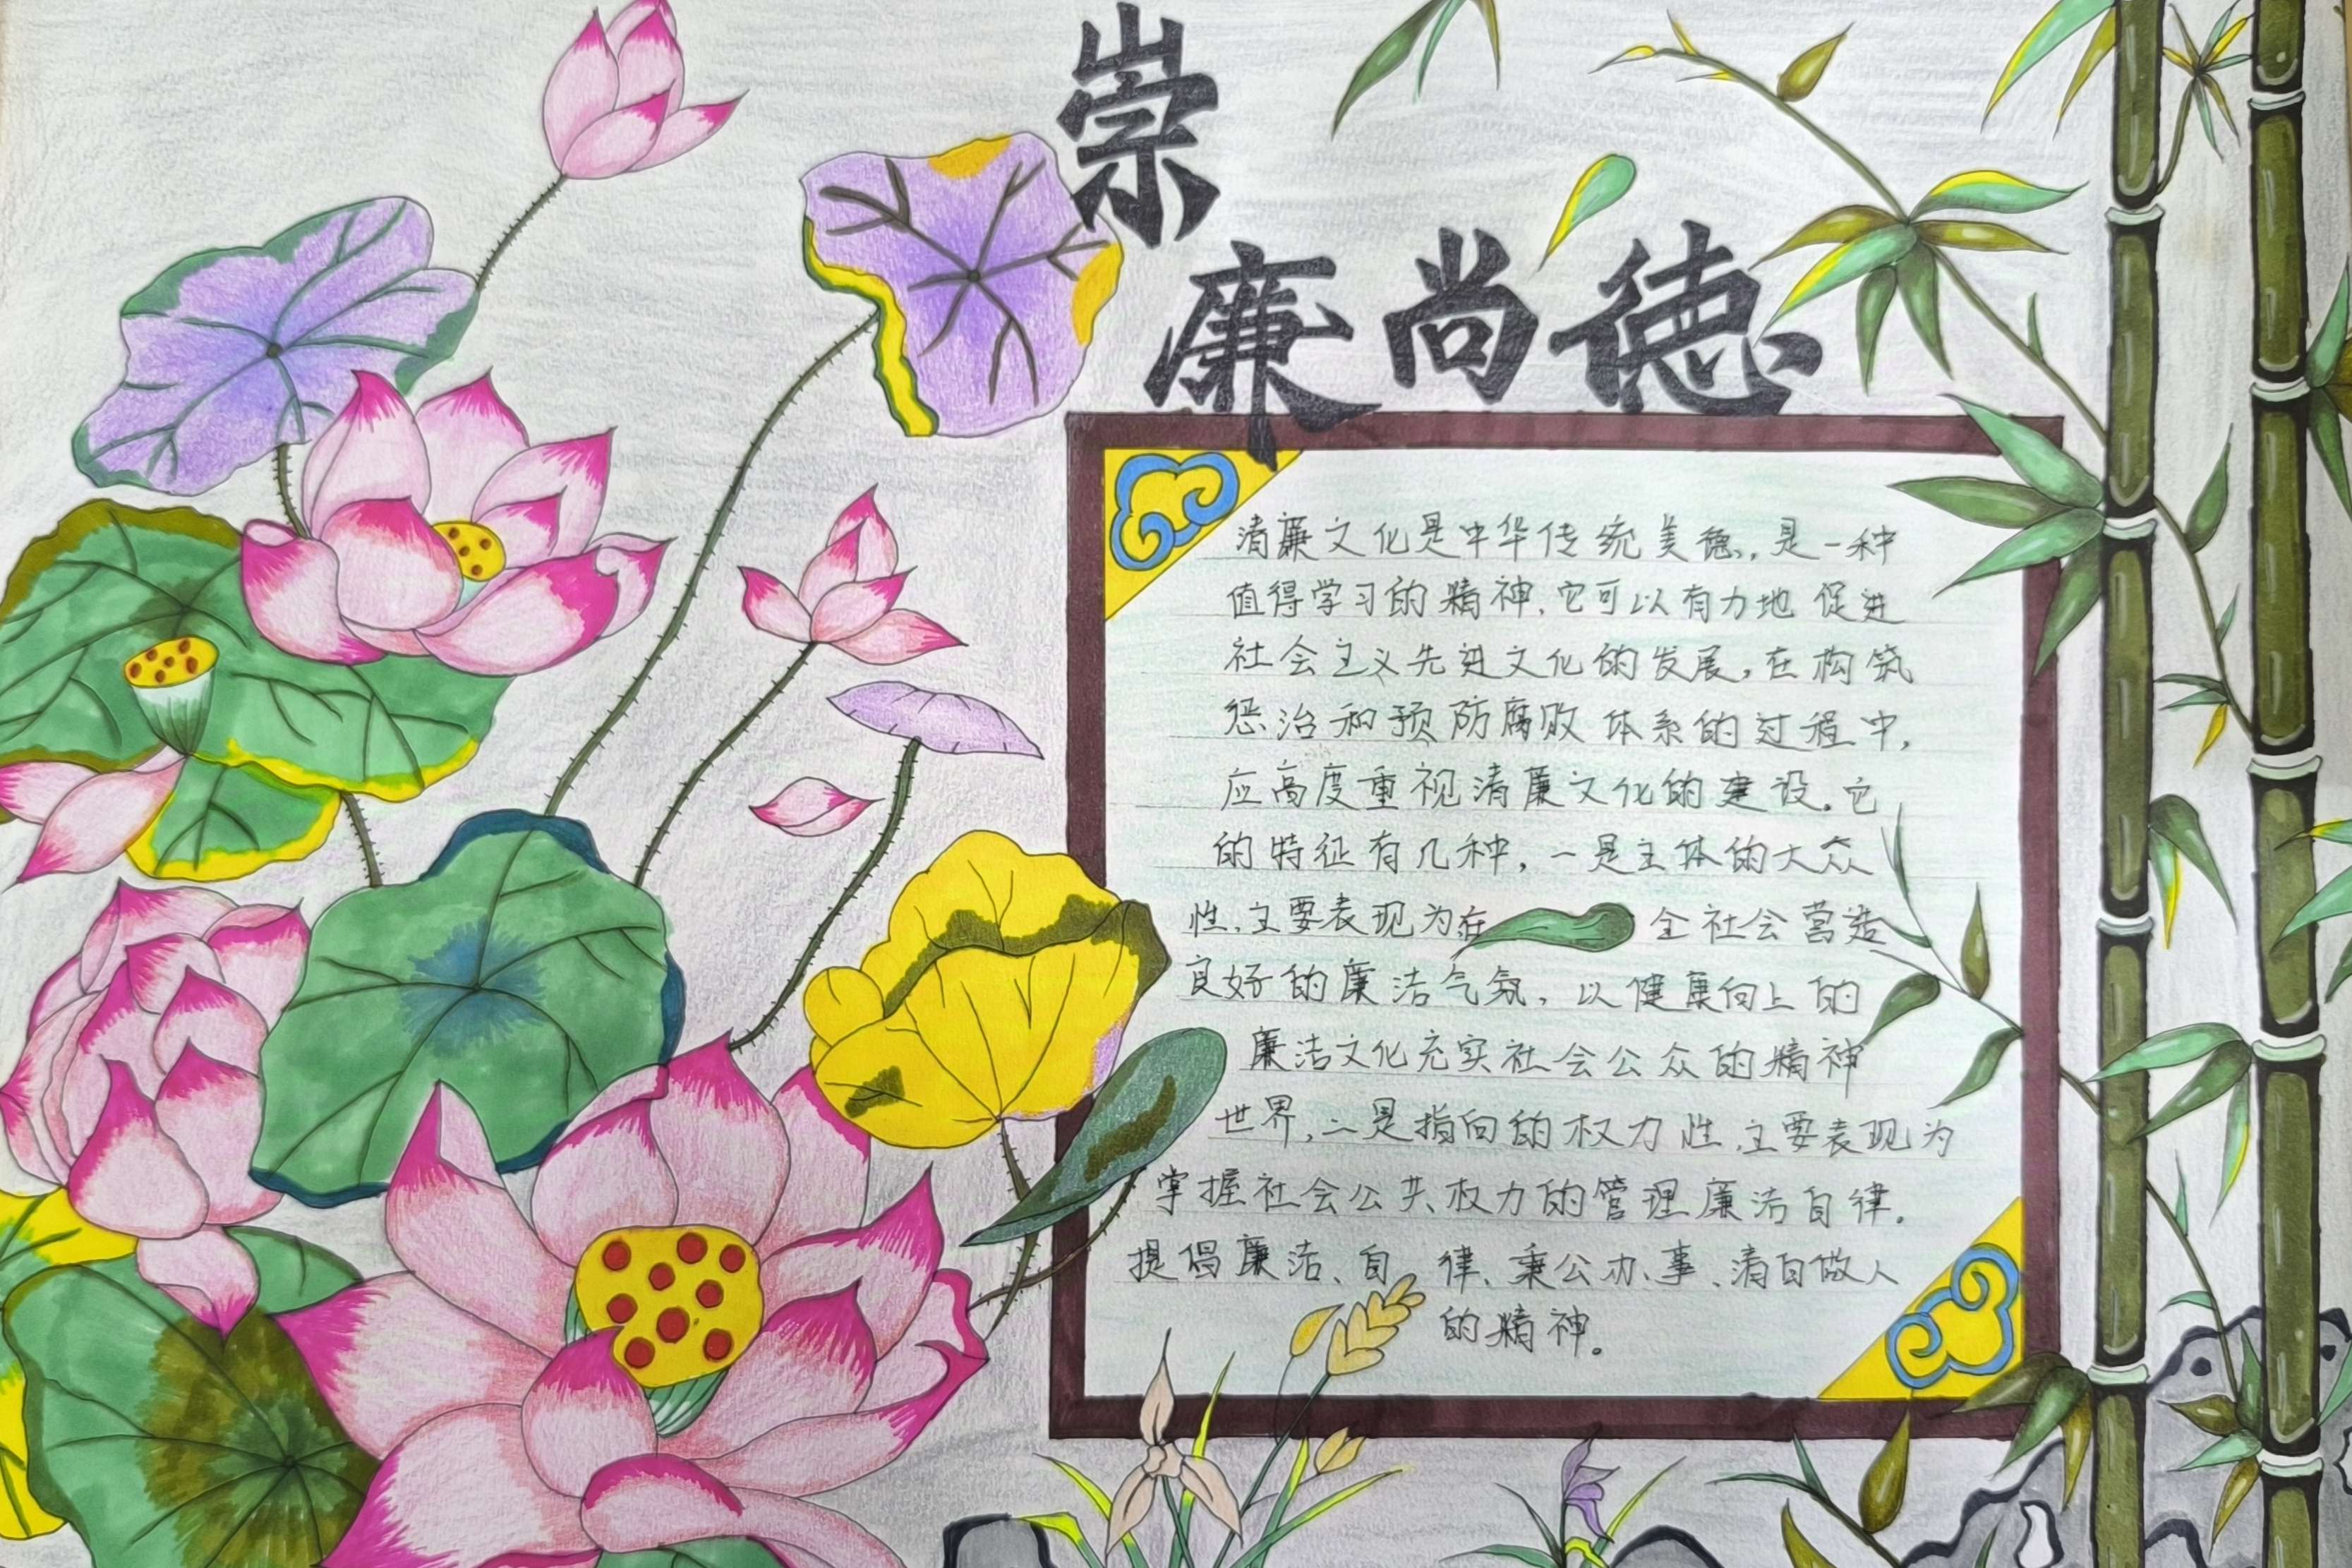 崇
廉尚德
清廉文化是中华传统美德,是一种
值得学习的精神,它可以有力地促进
社会主义先进文化的发展,在构筑
惩治和预防腐败体系的过程中,
应高度重视清廉文化的建设。它
的特征有几种,一是主体的大众
性,主要表现为在全社会营造
良好的廉洁气氛,以健康向上的
廉洁文化充实社会公众的精神
世界,二是指向的权力性,主要表现为
掌握社会公共权力的管理廉洁自律。
提倡廉洁、自律、秉公办、事、清白做人
的精神。